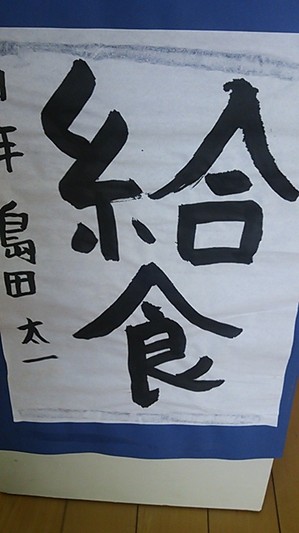 給食
年 島田 太一